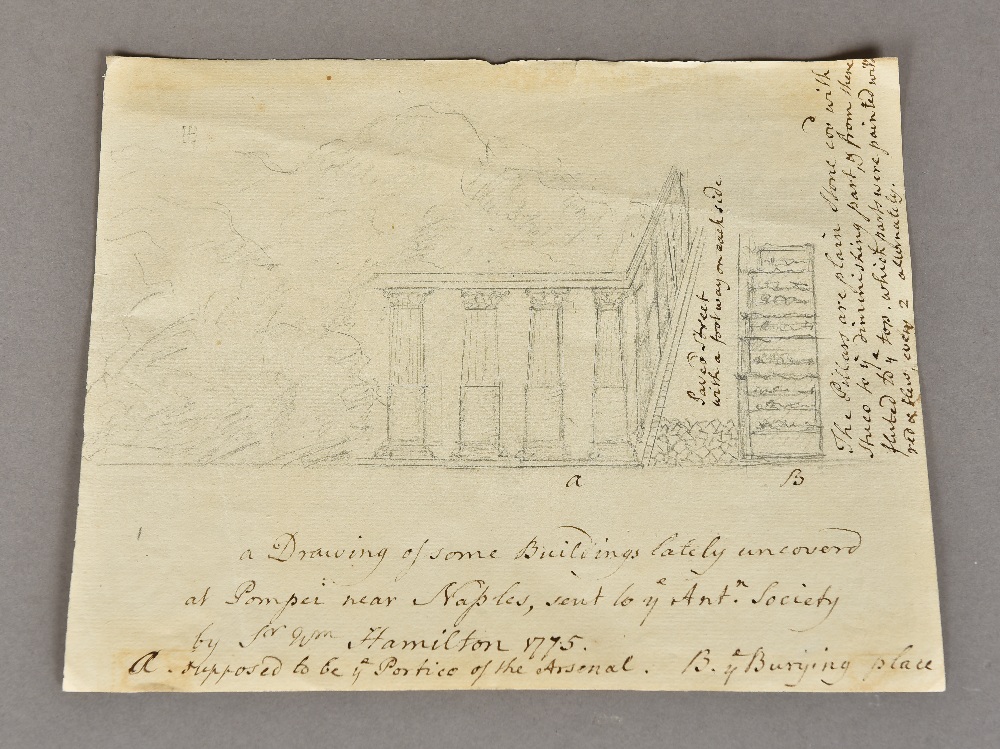 The Pillars are plain Stone cov'd with
stuco to ye diminishing part, & from there
fluted to ye top. which parts were painted with
red & blew, every 2 alternately.
Paved Street
with a foot way on each side
a
B
a Drawing of some Buildings lately uncoverd
at Pompei near Naples, sent to ye Antn. Society
by Sr Wm Hamilton 1775.
a. supposed to be ye Portico of the Arsenal. B. ye Burying place